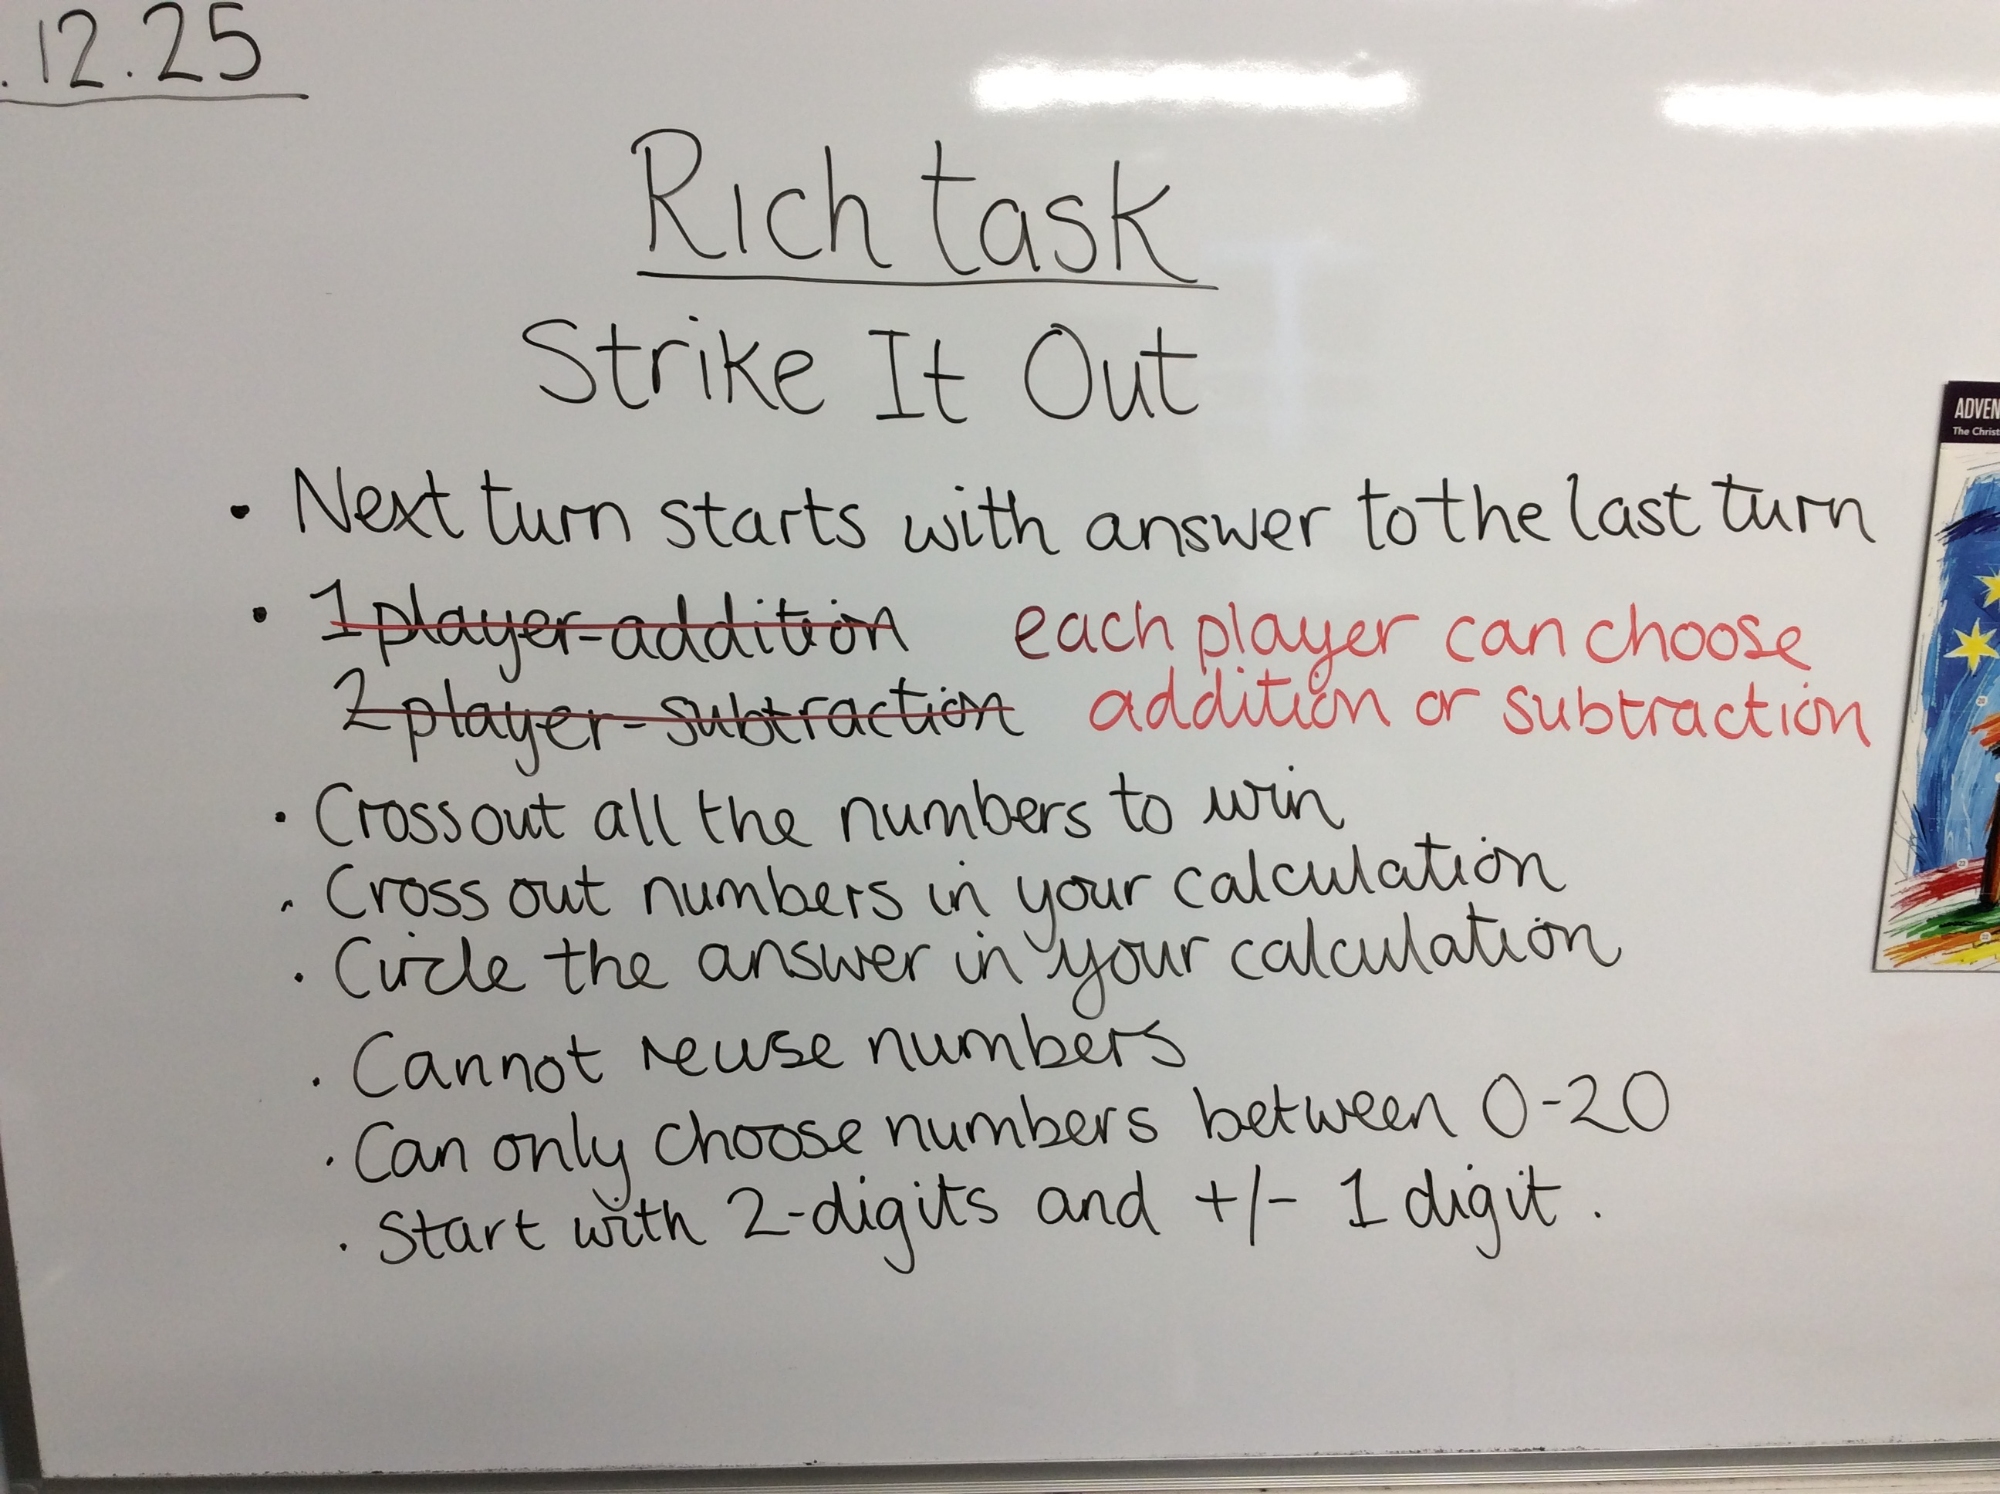 .12.25
Rich task
Strike It Out
• Next turn starts with answer to the last turn
• 1 player - addition each player can choose
2 player - subtraction addition or subtraction
• Cross out all the numbers to win
• Cross out numbers in your calculation
• Circle the answer in your calculation
• Cannot reuse numbers
• Can only choose numbers between 0-20
• Start with 2-digits and +/- 1 digit.
ADVEN
The Christ